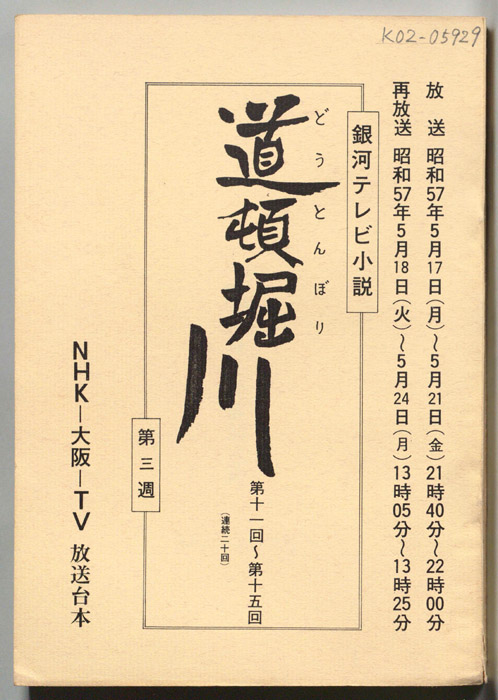 K02-05929
放送 昭和57年5月17日(月)〜5月21日(金)21時40分〜22時00分
再放送 昭和57年5月18日(火)〜5月24日(月)13時05分〜13時25分
銀河テレビ小説
どうとんぼり
道頓堀川
第十一回〜第十五回
(連続二十回)
第三週
NHK-大阪-TV 放送台本